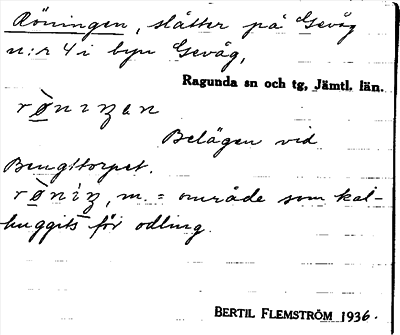 Röningen, slåtter på Gevåg
n:r 4 i byn Gevåg,
Ragunda sn och tg, Jämtl. län.
rö̀niŋen
Belägen vid
Bengttorpet.
rö̀niŋ, m. = område som kal-
huggits för odling.
BERTIL FLEMSTRÖM 1936.